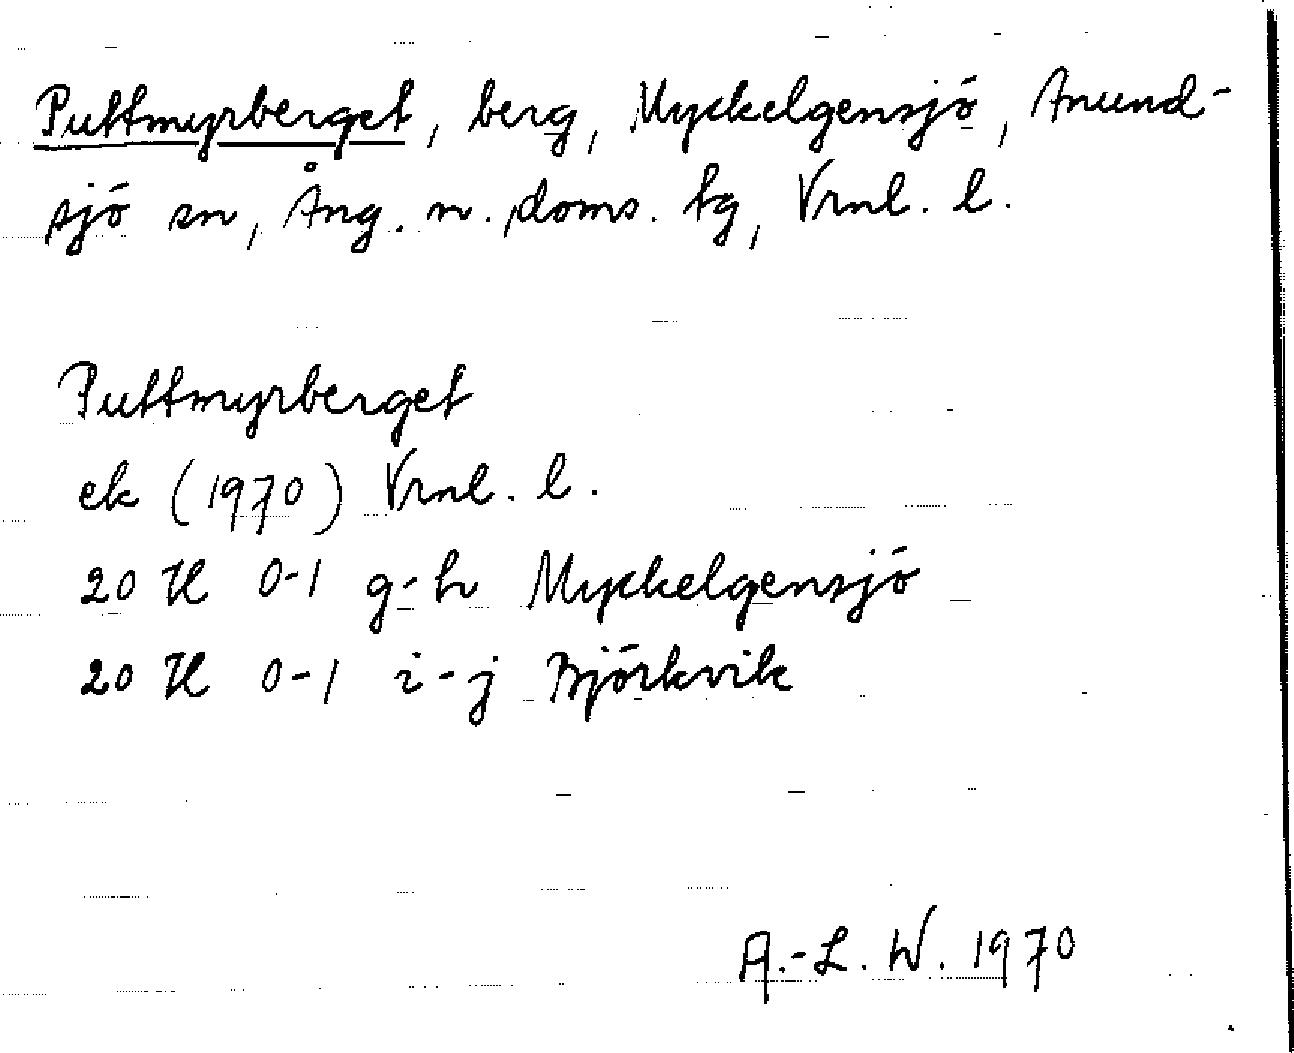 Puttmyrberget, berg, Myckelgensjö, Anund-
sjö sn, Ång. n. doms. tg, Vrnl. l.
Puttmyrberget
ek (1970) Vrnl. l.
20 H 0-1 g-h Myckelgensjö
20 H 0-1 i-j Björkvik
A.-L. W. 1970